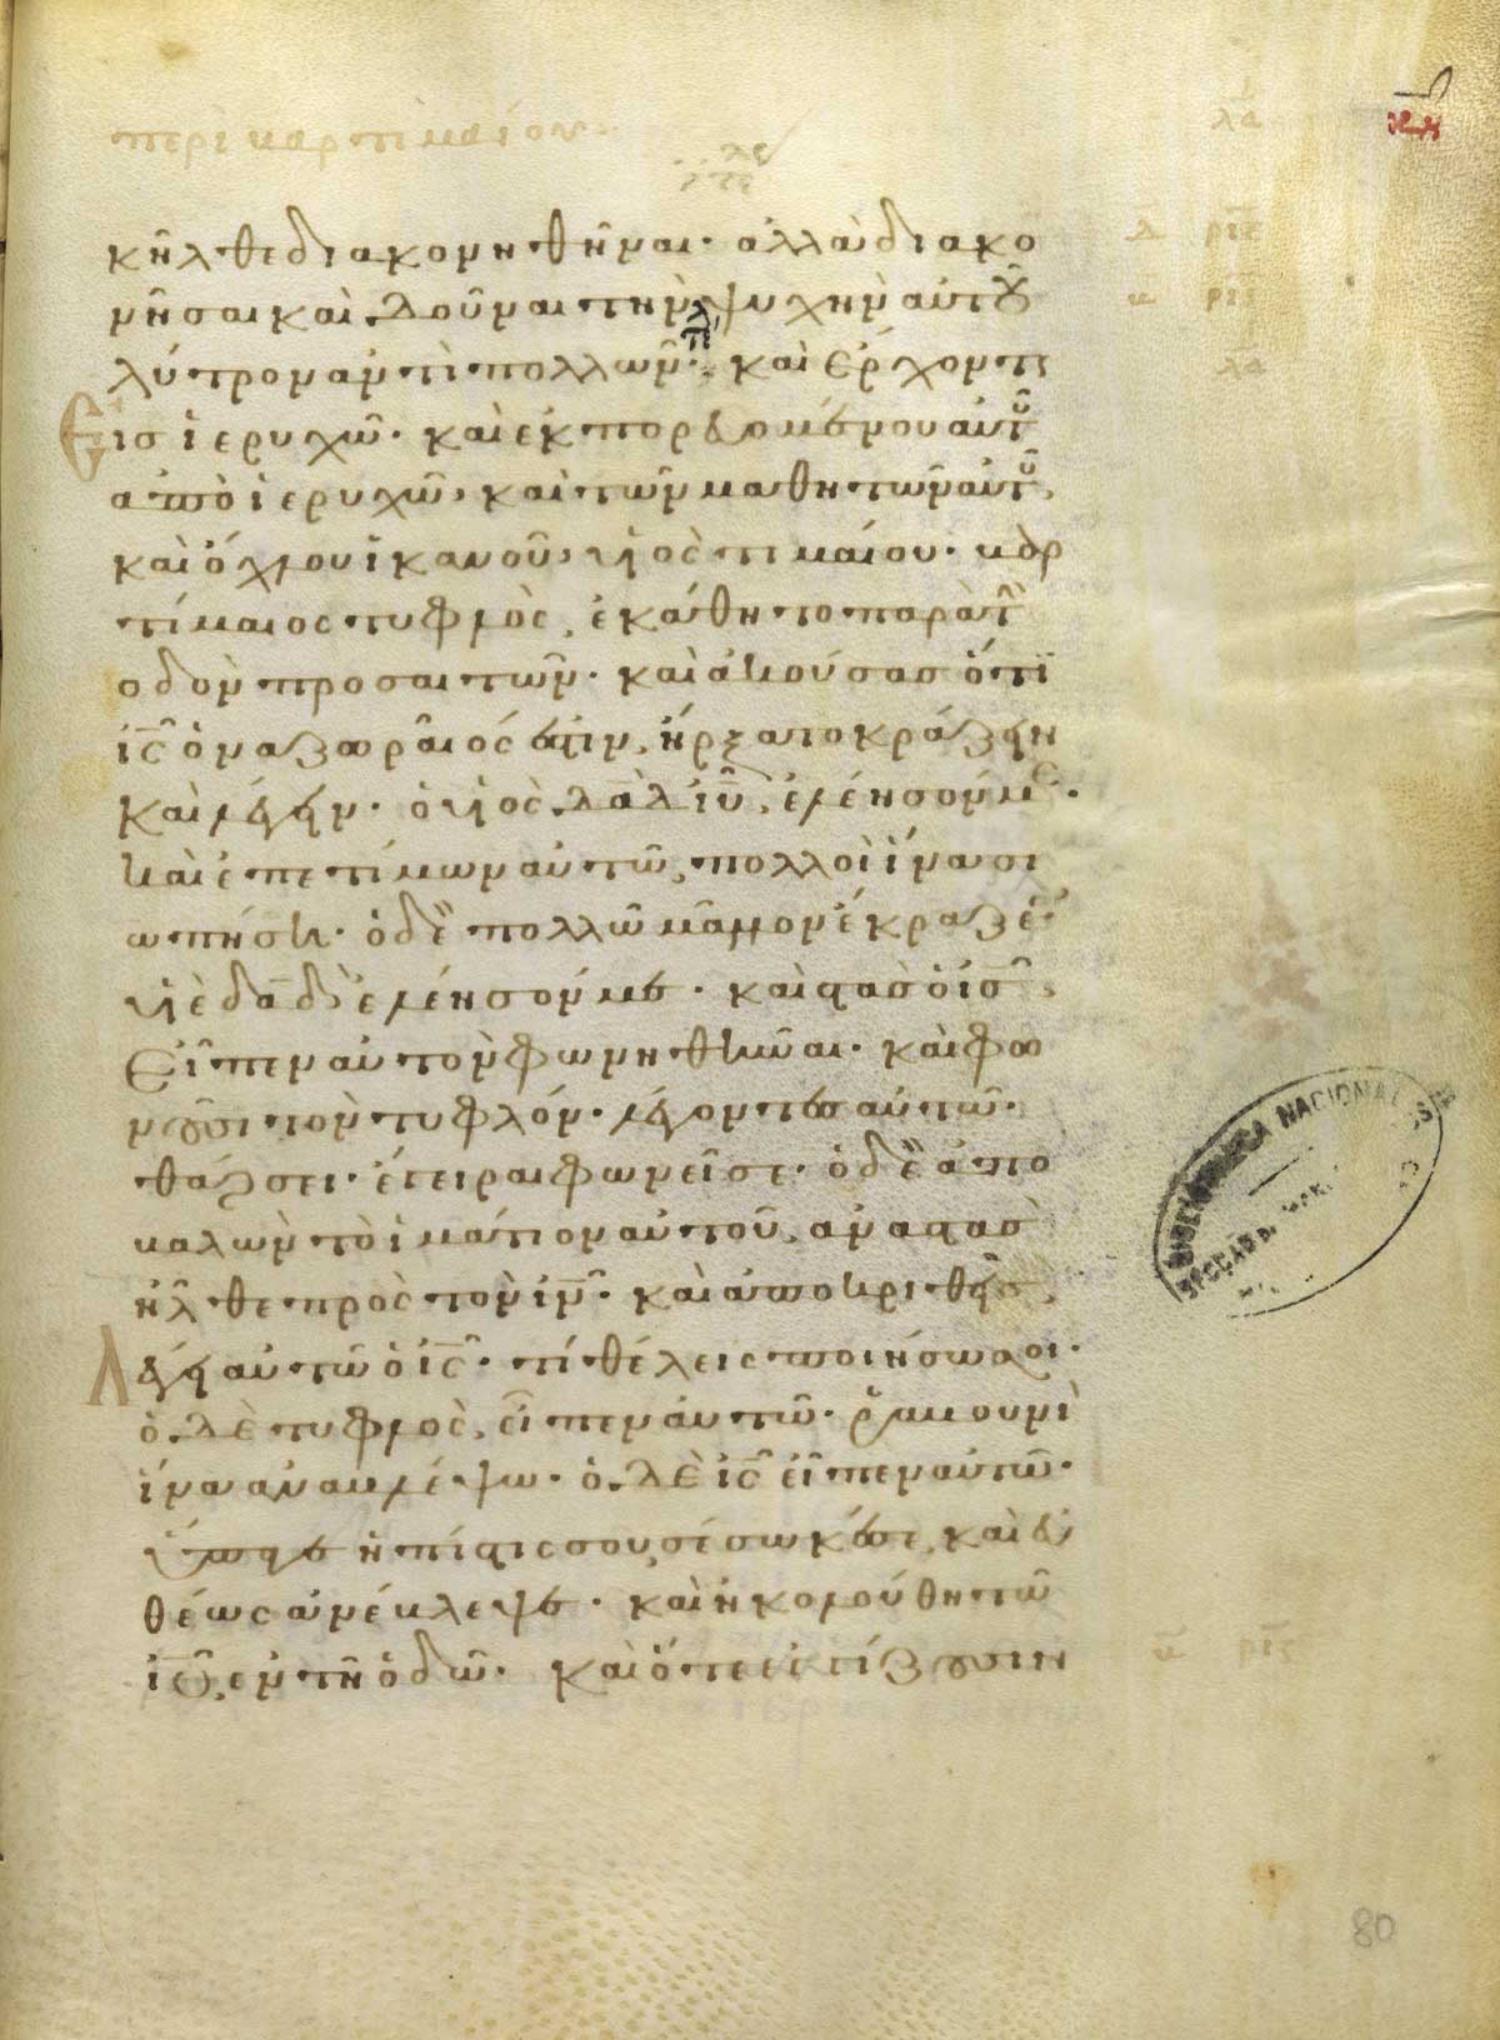 περὶ βαρτιμαίου
λα
κ ἦλθε διακονηθῆναι· ἀλλὰ διακο
νῆσαι καὶ δοῦναι τὴν ψυχὴν αὐτοῦ
λύτρον ἀντὶ πολλῶν· καὶ ἔρχοντ
Εισ ἱερυχῶ· καὶ ἐκπορευομένου αὐτοῦ
ἀπὸ ἱερυχῶ, καὶ τῶν μαθητῶν αὐτοῦ,
καὶ ὄχλου ἱκανοῦ, υἱὸς τιμαίου· βαρ
τίμαιος τυφλὸς, ἐκάθητο παρὰ τ
οδὸν προσαιτῶν· καὶ ἀκούσας ὅτι
ἰς ὁ ναζωραῖός ἐστιν, ἤρξατο κράζειν
καὶ λέγειν· ὁ υἱὸς δαδ ἰυ, ἐλέησόν με·
καὶ ἐπετίμων αὐτῶ, πολλοὶ ἵνα σι
ωπήση· ὁ δὲ πολλῶ μᾶλλον ἔκραζε·
υἱὲ δαδ ἐλέησόν με· καὶ στὰσ ὁ ἰσ
Εἶπεν αὐτὸν φωνηθῆναι· καὶ φω
νοῦσι τὸν τυφλόν· λέγοντες αὐτῶ·
θάρσει· ἔγειραι φωνεῖ σε· ὁ δὲ ἀπο
βαλὼν τὸ ἱμάτιον αὐτοῦ, ἀναστὰσ
ἦλθε πρὸς τὸν ἰν· καὶ ἀποκριθεὶσ,
Λέγει αὐτῶ ὁ ἰς· τί θέλεις ποιήσω σοι·
ὁ δὲ τυφλὸς, εἶπεν αὐτῶ· ῥαβουνὶ
ἵνα ἀναβλέψω· ὁ δὲ ἰς εἶπεν αὐτῶ·
ὕπαγε ἡ πίστις σου, σέσωκέ σε, καὶ εὐ
θέως ἀνέβλεψε· καὶ ἠκολούθη τῶ
ἰυ, ἐν τῆ ὁδῶ· καὶ ὅτε ἐγγίζουσιν
BIBLIOTHECA NACIONAL
80